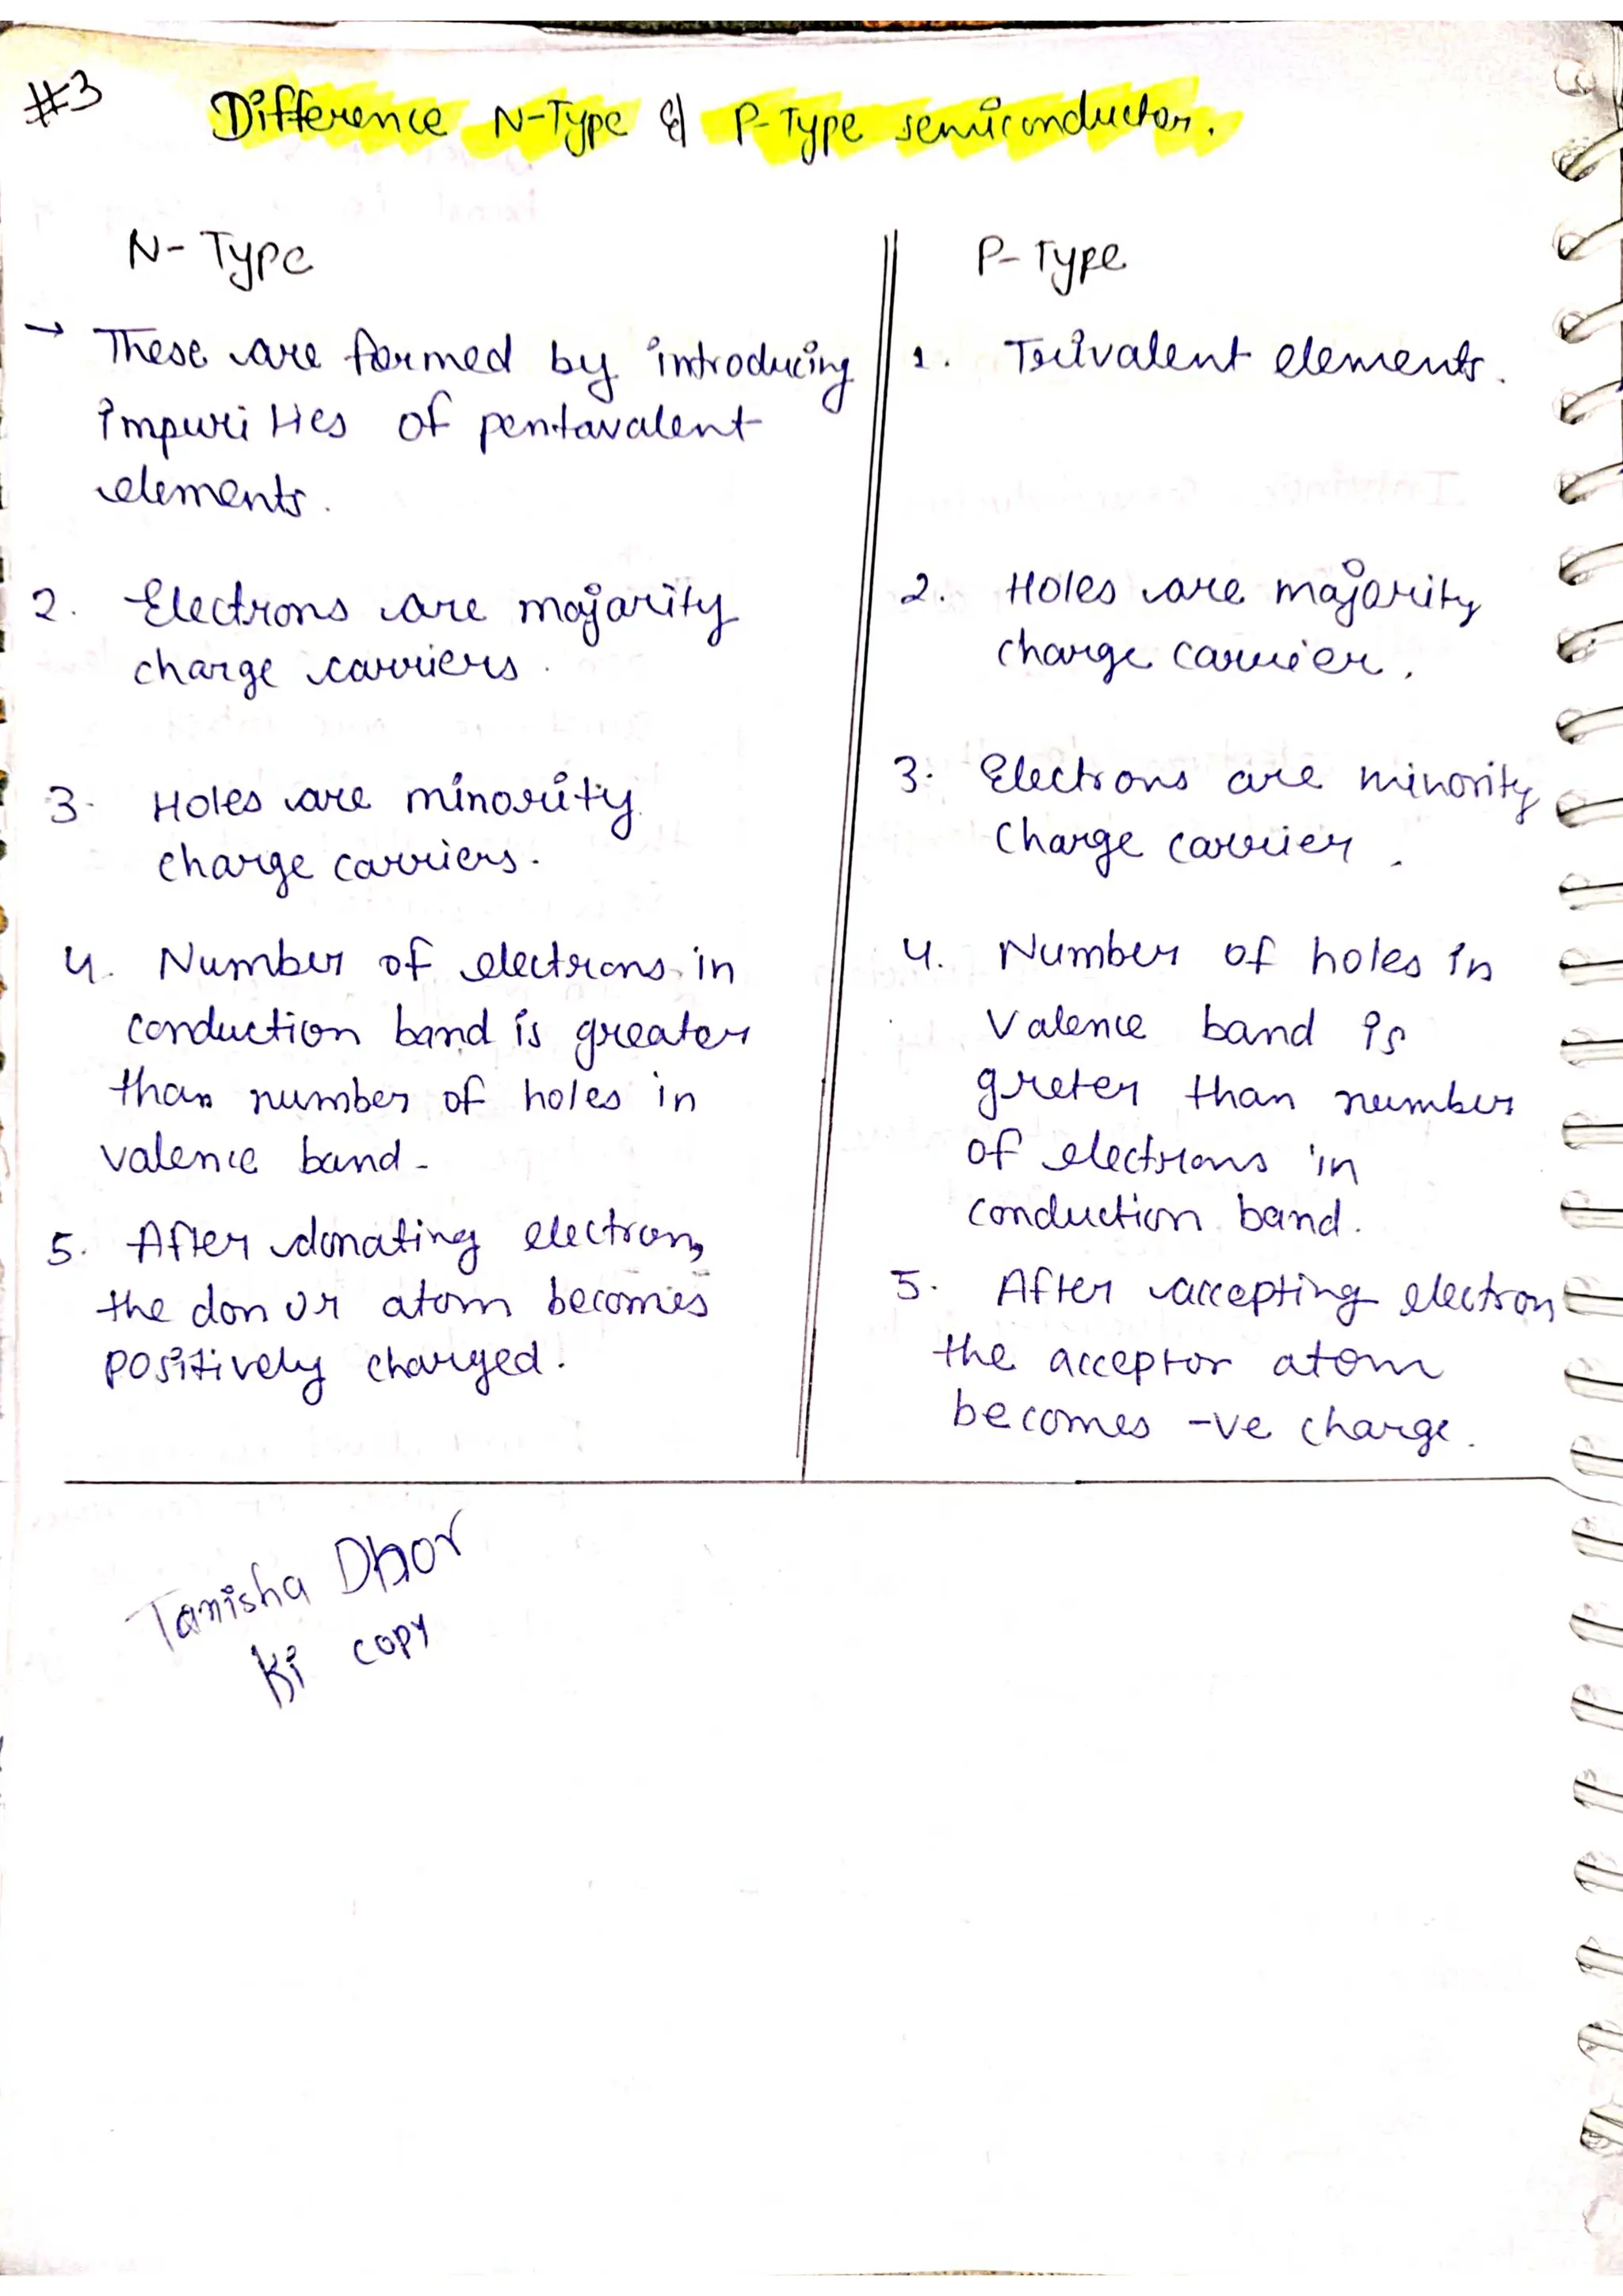 #3
Difference N-Type & P-Type semiconductor.
N-Type
→ These are formed by introducing
impurities of pentavalent
elements.
2. Electrons are majority
charge carriers.
3. Holes are minority
charge carriers.
4. Number of electrons in
conduction band is greater
than number of holes in
valence band.
5. After donating electron,
the donor atom becomes
positively charged.
P-Type
1. Trivalent elements.
2. Holes are majority
charge carrier.
3. Electrons are minority
charge carrier.
4. Number of holes in
valence band is
greter than number
of electrons in
conduction band.
5. After accepting electron
the acceptor atom
becomes -ve charge.
Tanisha Dhor
Ki copy